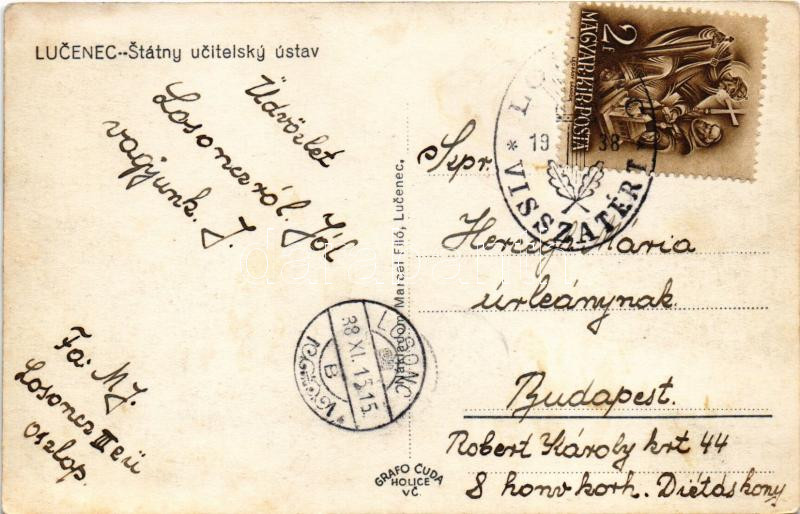 LUČENEC--Štátny učitelský ústav
Üdvözlet
Losonczról. Jól
vagyunk. J.
Fa: M J.
Losoncz III eü
oszlop.
Nakladom Marcel Filó, Lučenec.
GRAFO ČUDA
HOLICE
VČ.
2 F
MAGYAR·KIR·POSTA
LO
19 38
* VISSZATÉRT
LOSONC
38 XI. 15 15
B
Szpr.
Herczegh Maria
úrleánynak.
Budapest.
Robert Károly krt 44
8 honv korh. Diétás kony